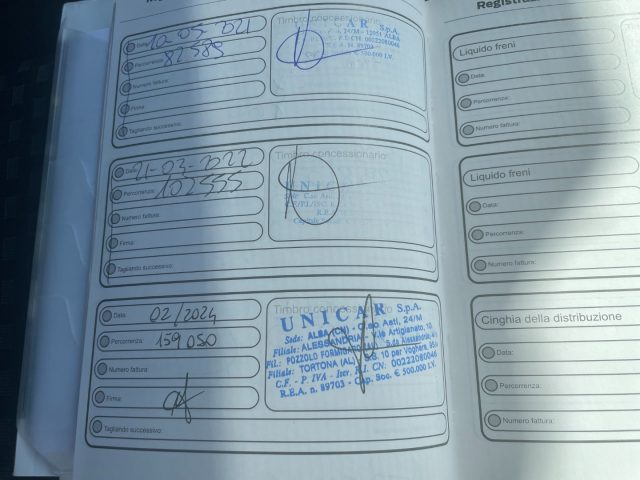 Registrazi
Data: 20-05-2021
Timbro concessionario:
UNICAR S.p.A.
24/M - 12051 ALBA
00222080046
R.E.A. N. 89703
€ 500.000 I.V.
Percorrenza: 82585
Numero fattura:
Firma:
Tagliando successivo:
Liquido freni
Data:
Percorrenza:
Numero fattura:
Data: 21-03-2022
Timbro concessionario:
UNIC
Sede C.so Asti,
R.E.
Capitale
Percorrenza: 102555
Numero fattura:
Firma:
Tagliando successivo:
Liquido freni
Data:
Percorrenza:
Numero fattura:
Data: 02/2024
Timbro concessionario
UNICAR S.p.A.
Sede: ALBA (CN) - C.so Asti, 24/M
Filiale: ALESSANDRIA - V.le Artigianato, 10
Fil.: POZZOLO FORMIGAROSS.
Filiale: TORTONA (AL) - S.S. 10 per Voghera
C.F. - P. IVA - Iscr. R.I. CN: 00222080046
R.E.A. n. 89703 - Cap. Soc. € 500.000 I.V.
Percorrenza: 159 050
Numero fattura:
Firma:
Tagliando successivo:
Cinghia della distribuzione
Data:
Percorrenza:
Numero fattura: